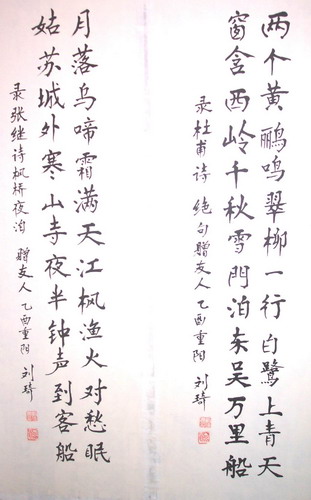 两个黄鹂鸣翠柳一行白鹭上青天
窗含西岭千秋雪门泊东吴万里船
录杜甫诗 绝句赠友人 乙酉重阳 刘琦
月落乌啼霜满天江枫渔火对愁眠
姑苏城外寒山寺夜半钟声到客船
录张继诗枫桥夜泊 赠友人 乙酉重阳 刘琦